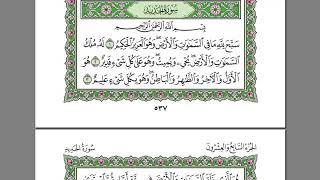 سُورَةُ الحَدِيدِ
بِسْمِ اللَّهِ الرَّحْمَٰنِ الرَّحِيمِ
سَبَّحَ لِلَّهِ مَا فِي السَّمَٰوَٰتِ وَالْأَرْضِ وَهُوَ الْعَزِيزُ الْحَكِيمُ ١ لَهُ مُلْكُ
السَّمَٰوَٰتِ وَالْأَرْضِ يُحْيِي وَيُمِيتُ وَهُوَ عَلَىٰ كُلِّ شَيْءٍ قَدِيرٌ ٢ هُوَ
الْأَوَّلُ وَالْآخِرُ وَالظَّٰهِرُ وَالْبَاطِنُ وَهُوَ بِكُلِّ شَيْءٍ عَلِيمٌ ٣
٥٣٧
الجزء السابع والعشرون
سورة الحديد